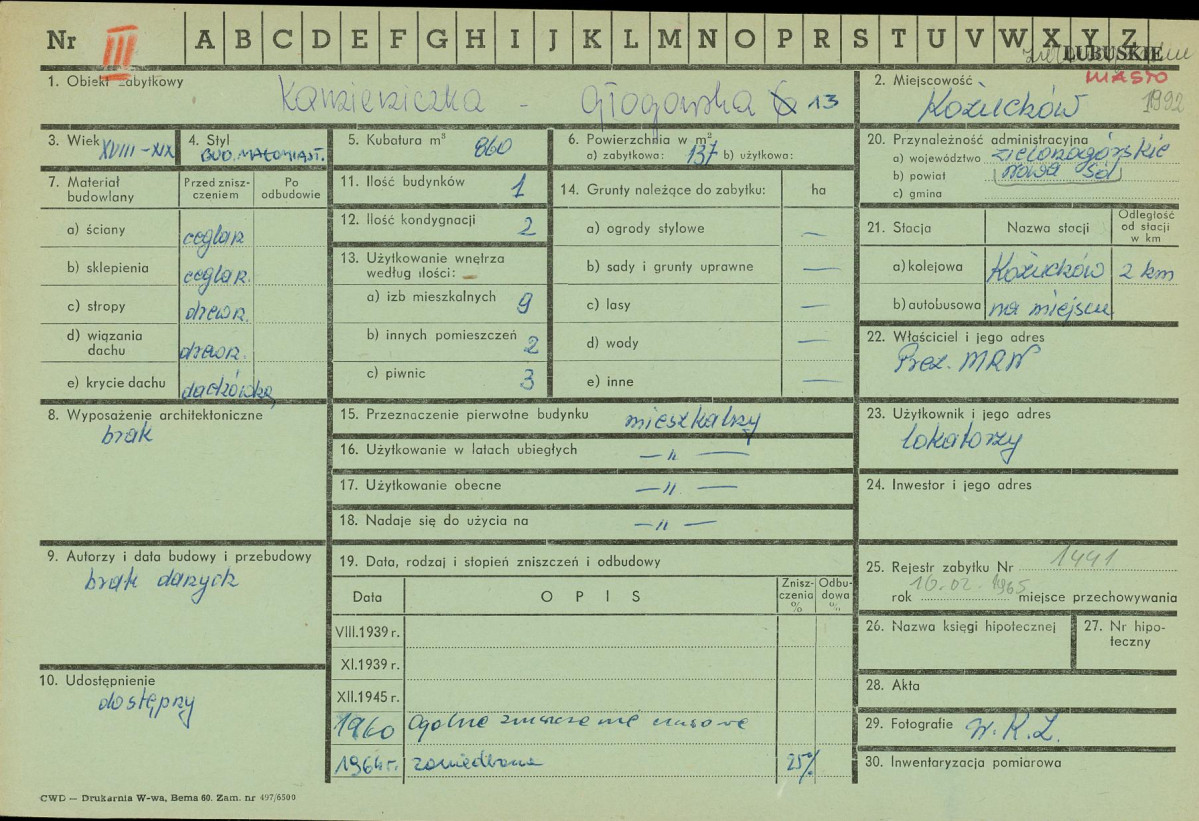 Nr III A B C D E F G H I J K L M N O P R S T U V W X Y Z
LUBUSKIE
MIASTO
1992
1. Obiekt zabytkowy Kamieniczka - Głogowska 6 13
2. Miejscowość
Kożuchów
3. Wiek XVIII-XIX
4. Styl
BUD. MAŁOMIAST.
5. Kubatura m³ 860
6. Powierzchnia w m²
a) zabytkowa: 137 b) użytkowa:
20. Przynależność administracyjna
a) województwo zielonogórskie
b) powiat nowa sól
c) gmina
7. Materiał budowlany
Przed znisz-
czeniem
Po
odbudowie
a) ściany ceglan.
b) sklepienia ceglan.
c) stropy drewn.
d) wiązania
dachu drewn.
e) krycie dachu dachówka
11. Ilość budynków 1
12. Ilość kondygnacji 2
13. Użytkowanie wnętrza
według ilości: —
a) izb mieszkalnych 9
b) innych pomieszczeń 2
c) piwnic 3
14. Grunty należące do zabytku: ha
a) ogrody stylowe —
b) sady i grunty uprawne —
c) lasy —
d) wody —
e) inne —
21. Stacja
Nazwa stacji
Odległość
od stacji
w km
a) kolejowa Kożuchów 2 km
b) autobusowa na miejscu
22. Właściciel i jego adres
Prez. MRN
8. Wyposażenie architektoniczne
brak
15. Przeznaczenie pierwotne budynku mieszkalny
16. Użytkowanie w latach ubiegłych —"—
17. Użytkowanie obecne —"—
18. Nadaje się do użycia na —"—
23. Użytkownik i jego adres
lokatorzy
24. Inwestor i jego adres
9. Autorzy i data budowy i przebudowy
brak danych
10. Udostępnienie
dostępny
19. Data, rodzaj i stopień zniszczeń i odbudowy
Data
OPIS
Znisz-
czenia
%
Odbu-
dowa
%
VIII.1939 r.
XI.1939 r.
XII.1945 r.
1960 ogólne zniszczenie
1964 r. zaniedbana 25%
25. Rejestr zabytku Nr 1441
rok 16.02.1965 miejsce przechowywania
26. Nazwa księgi hipotecznej
27. Nr hipo-
teczny
28. Akta
29. Fotografie W.K.Z.
30. Inwentaryzacja pomiarowa
CWD — Drukarnia W-wa, Bema 60. Zam. nr 497/6500